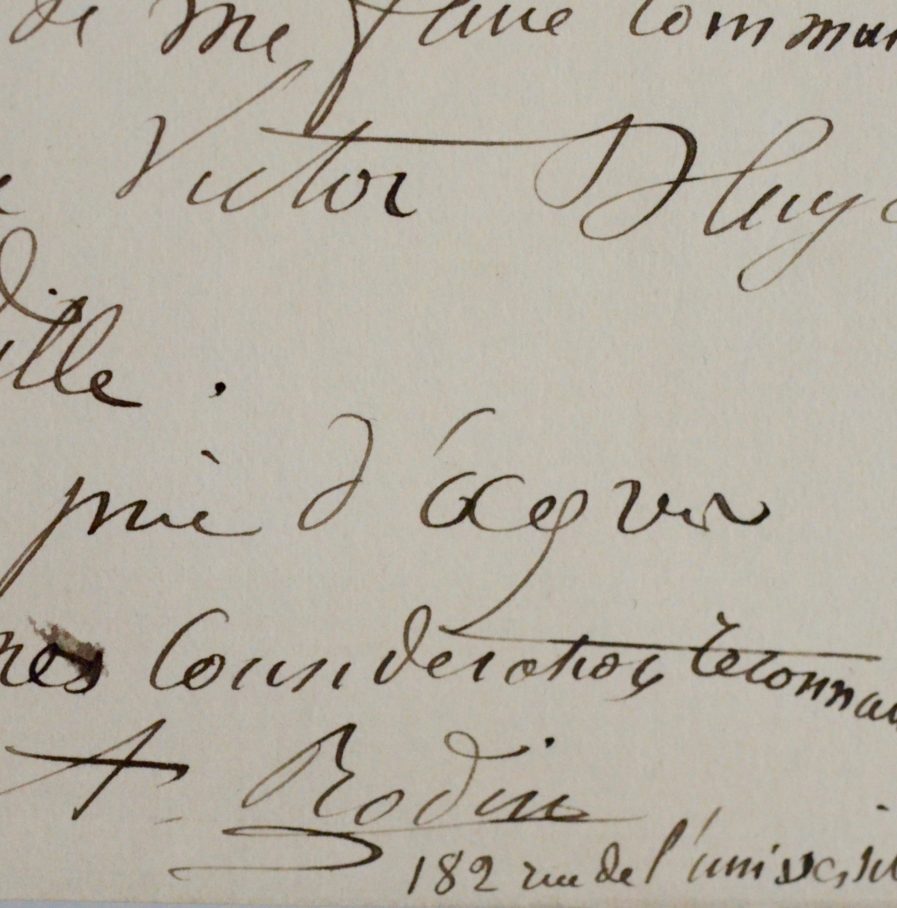 de me faire comman
Victor Hugo
ille.
prie d'agréer
considération reconnai
A. Rodin
182 rue de l'université